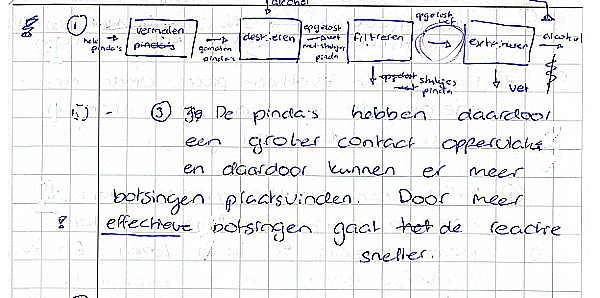 alcohol
① hele pinda's → vermalen pinda's → gemalen pinda's → destileren → opgelost vet met stukjes pinda → filtreren → opgelost vet → extraheren → alcohol
↓ opgelost stukjes vet pinda ↓ vet
5) - ③ De pinda's hebben daardoor
een groter contact oppervlakte
en daardoor kunnen er meer
botsingen plaatsvinden. Door meer
effectieve botsingen gaat het de reactie
sneller.